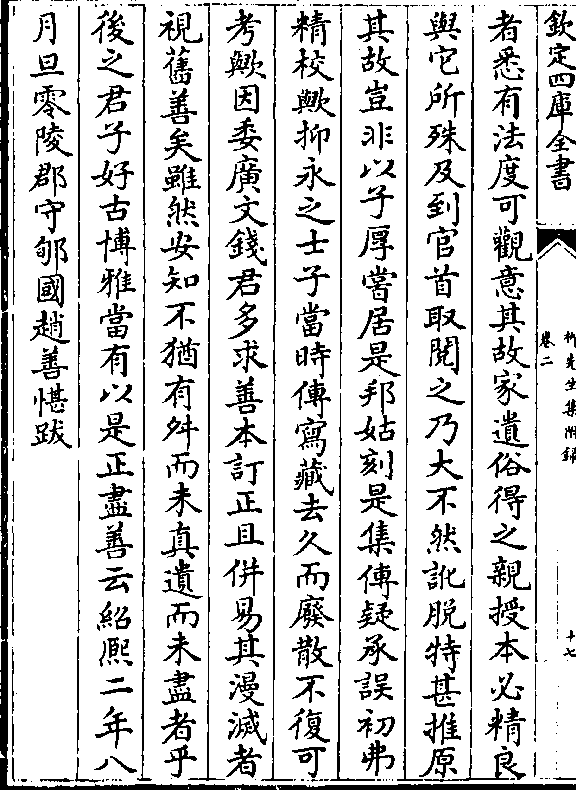 欽定四庫全書
柳先生集附錄
卷二
十七
者悉有法度可觀意其故家遺俗得之親授本必精良
與它所殊及到官首取閱之乃大不然訛脱特甚推原
其故豈非以子厚嘗居是邦姑刻是集傳疑承誤初弗
精校歟抑永之士子當時傳寫藏去久而廢散不復可
考歟因委廣文錢君多求善本訂正且併易其漫滅者
視舊善矣雖然安知不猶有舛而未真遺而未盡者乎
後之君子好古博雅當有以是正盡善云紹熙二年八
月旦零陵郡守郇國趙善愖跋